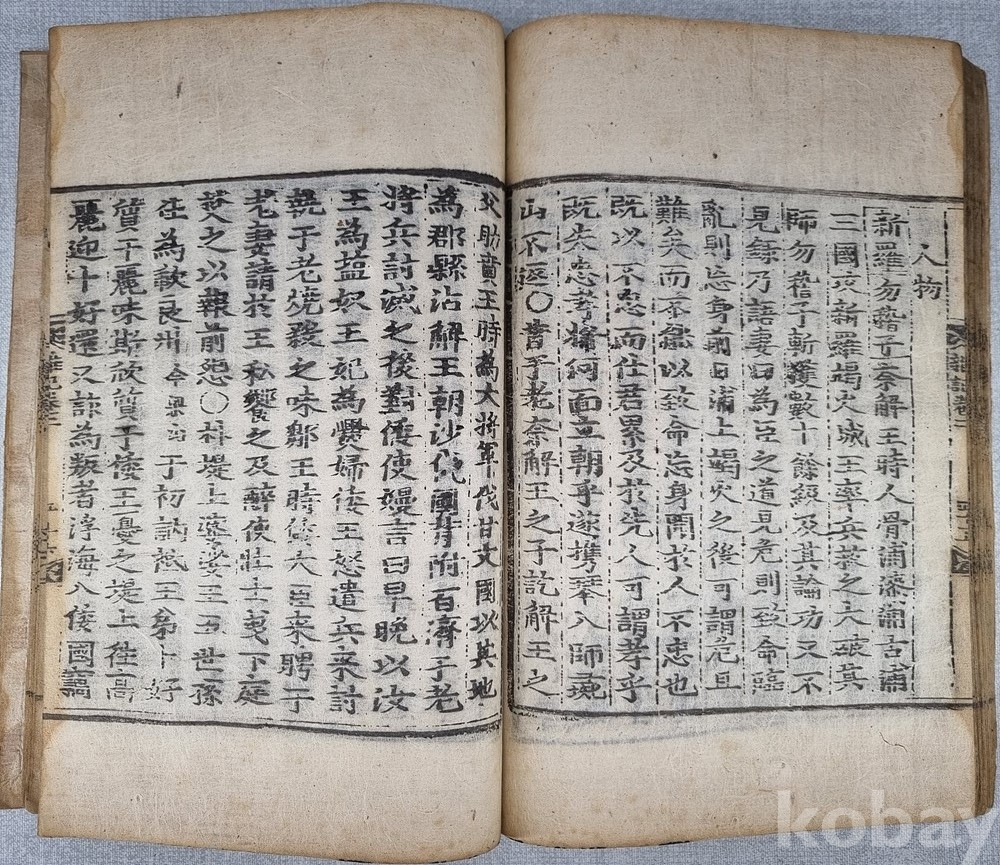 人物
新羅勿稽子奈解王時人骨浦漆浦古浦
三國攻新羅竭火城王率兵救之大破其
師勿稽子斬獲數十餘級及其論功又不
見錄乃語妻曰爲臣之道見危則致命臨
亂則忘身前日浦上竭火之後可謂危且
難矣而不能以致命忘身聞於人不忠也
既以不忠而仕君累及於先人可謂孝乎
既失忠孝將何面立朝乎遂携琴入師彘
山不返〇昔于老奈解王之子訖解王之
父助賁王時爲大將軍伐甘文國以其地
爲郡縣沾解王朝沙伐國背附百濟于老
將兵討滅之後對倭使嫚言曰早晩以汝
王爲塩奴王妃爲爨婦倭王怒遣兵來討
執于老燒殺之味鄒王時倭大臣來聘于
老妻請於王私饗之及醉使壯士曳下庭
焚之以報前怨〇朴堤上婆娑王五世孫
仕爲歃良州今梁山干初訥祗王弟卜好
質于麗味斯欣質于倭王憂之堤上徃高
麗迎卜好還又詐爲叛者浮海入倭國竊
卷二
kobay